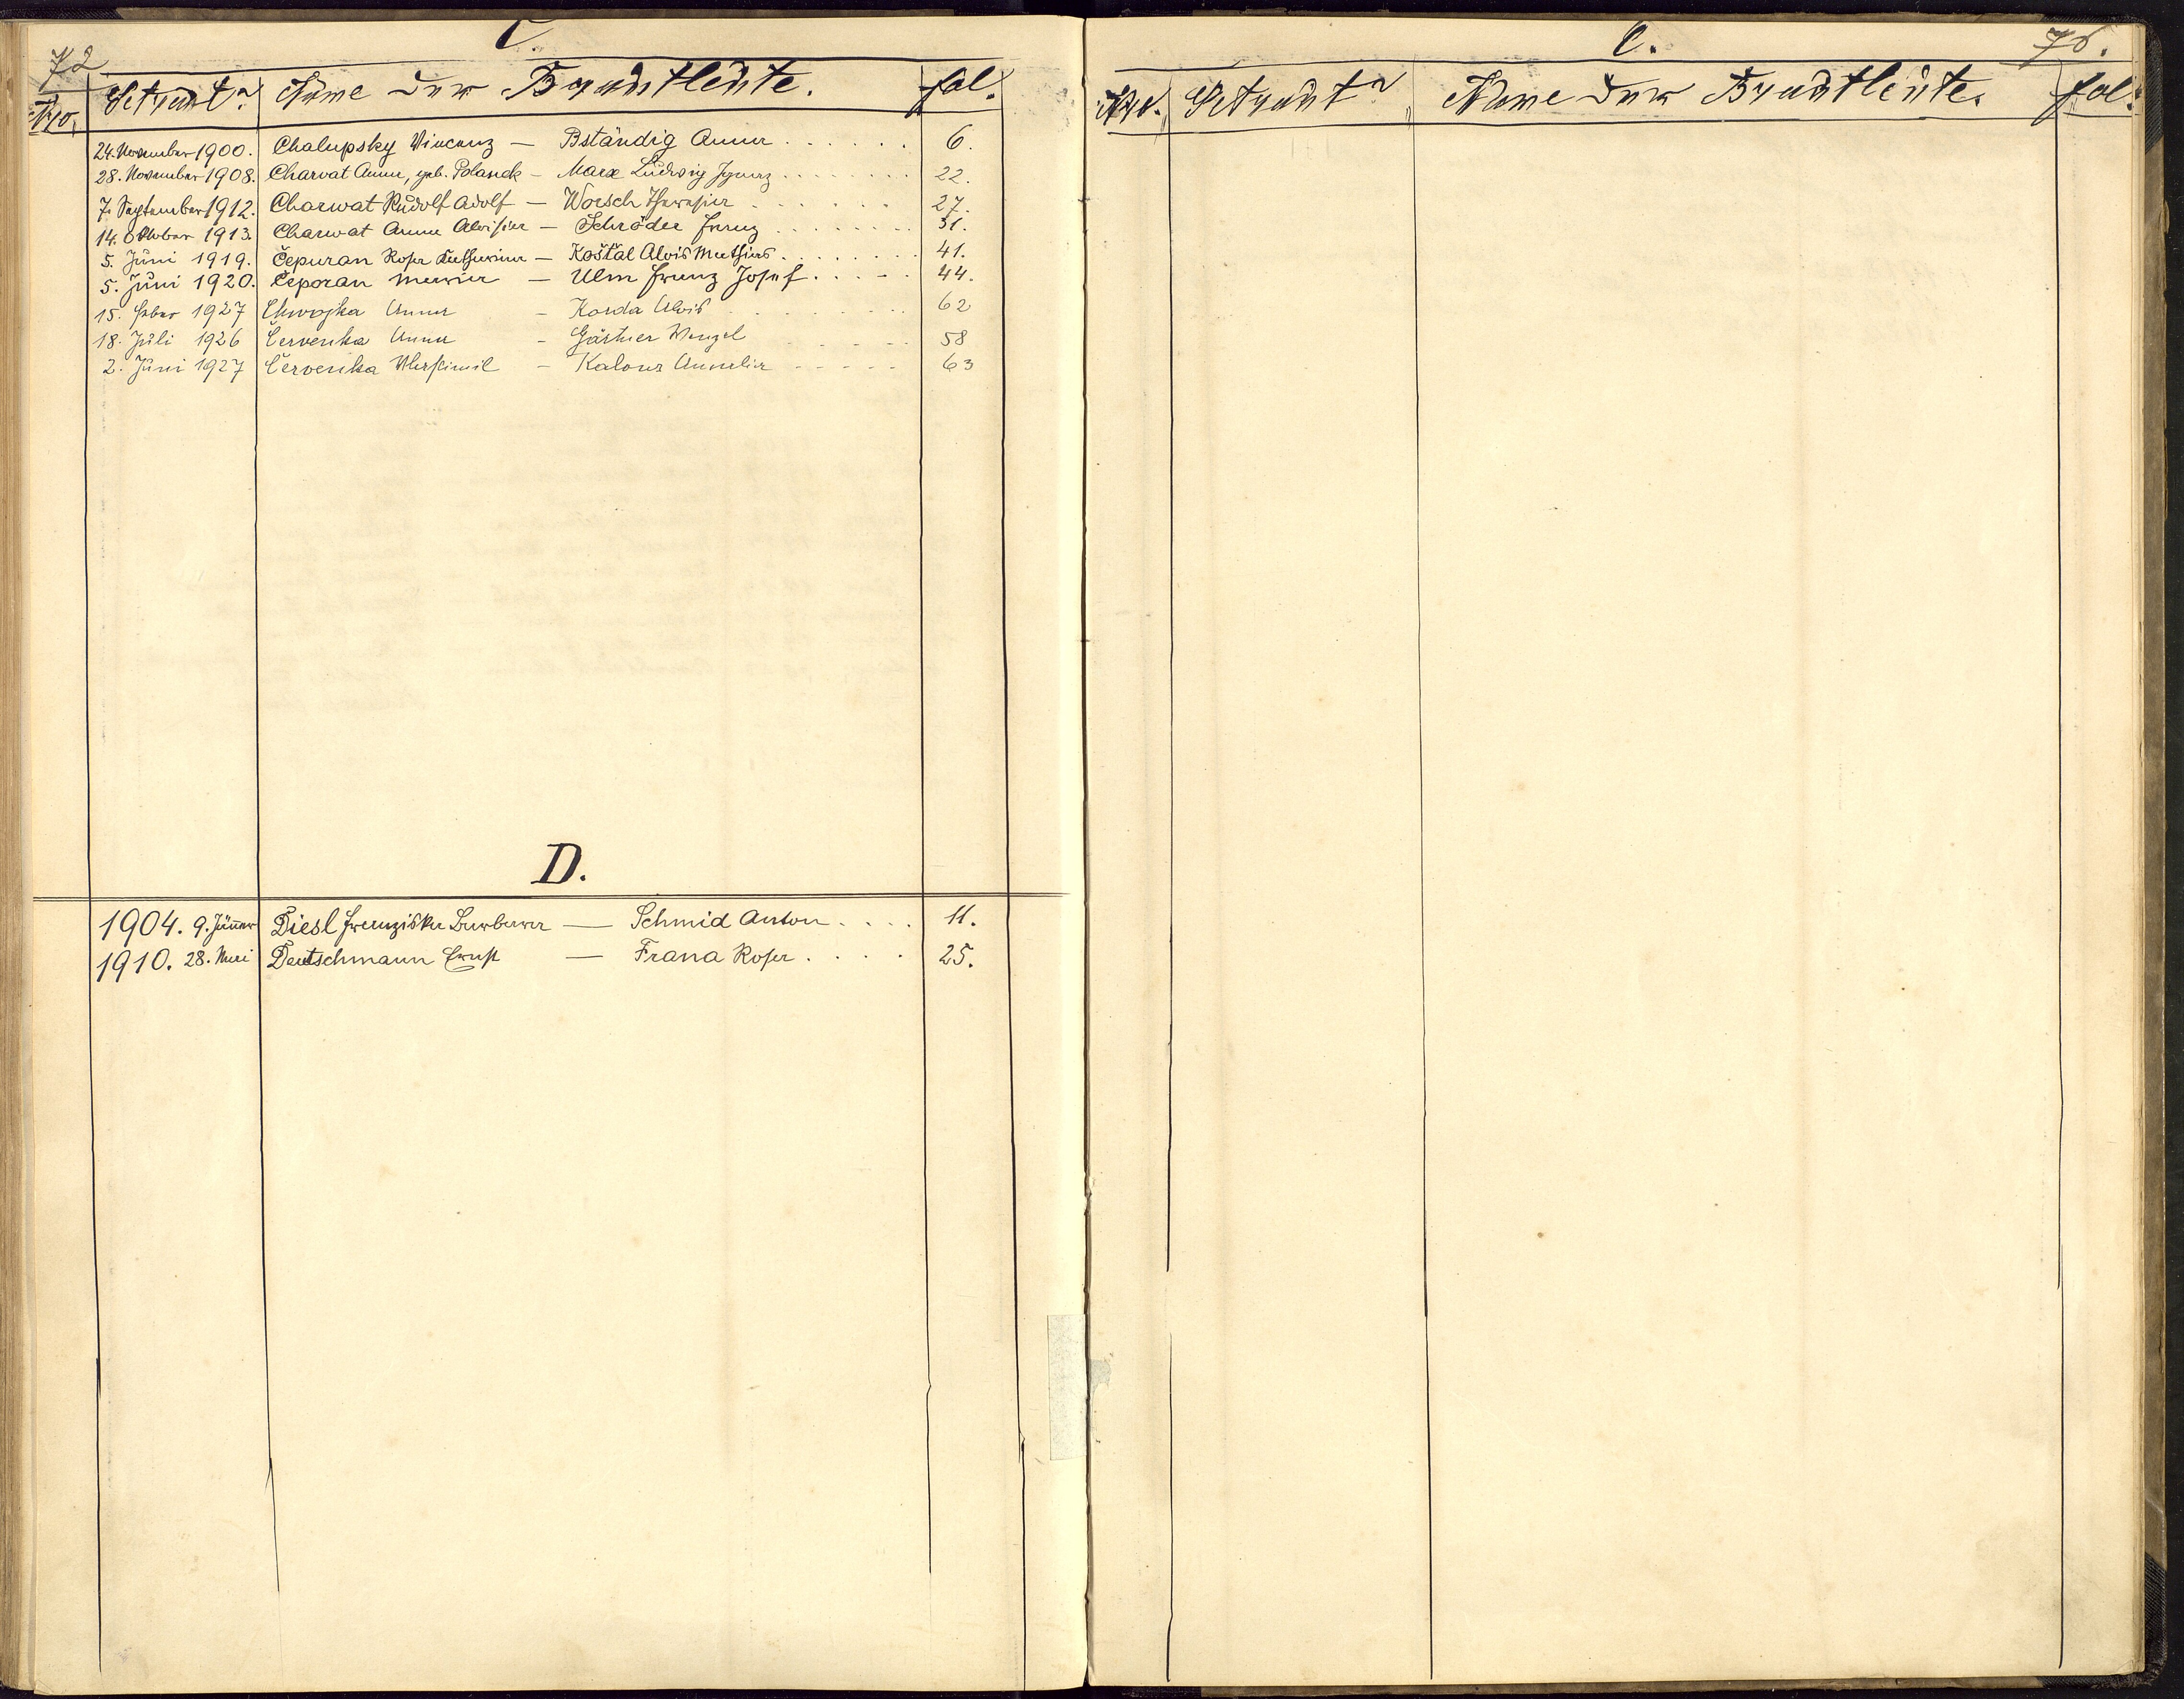 72
C.
Nro. Getraut: Name der Brautleute. fol.
24. November 1900. Chalupsky Vincenz — Bständig Anna . . . . . . 6.
28. November 1908. Charvat Anna, geb. Polansk — Marx Ludwig Ignaz . . . . . . . . 22.
7. September 1912. Charwat Rudolf Adolf — Worsch Theresia . . . . . . . 27.
14. Oktober 1913. Charwat Anna Aloisia — Schröder Franz . . . . . . . . 31.
5. Juni 1919. Čepuran Rosa Katharina — Košťal Alois Mathias . . . . . . . . 41.
5. Juni 1920. Čeporan Maria — Ulm Franz Josef . . . . . 44.
15. Feber 1927 Chwojka Anna - Korda Alois . . . . . . . . . 62
18. Juli 1926 Červenka Anna - Gärtner Wenzel . . . . . 58
2. Juni 1927 Červenka - Kalous Amalia - - - - - 63
D.
1904. 9. Jänner Diesl Franziska Barbara — Schmid Anton . . . . 11.
1910. 28. Mai Deutschmann Ernst — Frana Rosa . . . . . 25.
C.
Nro. Getraut: Name der Brautleute. fol.